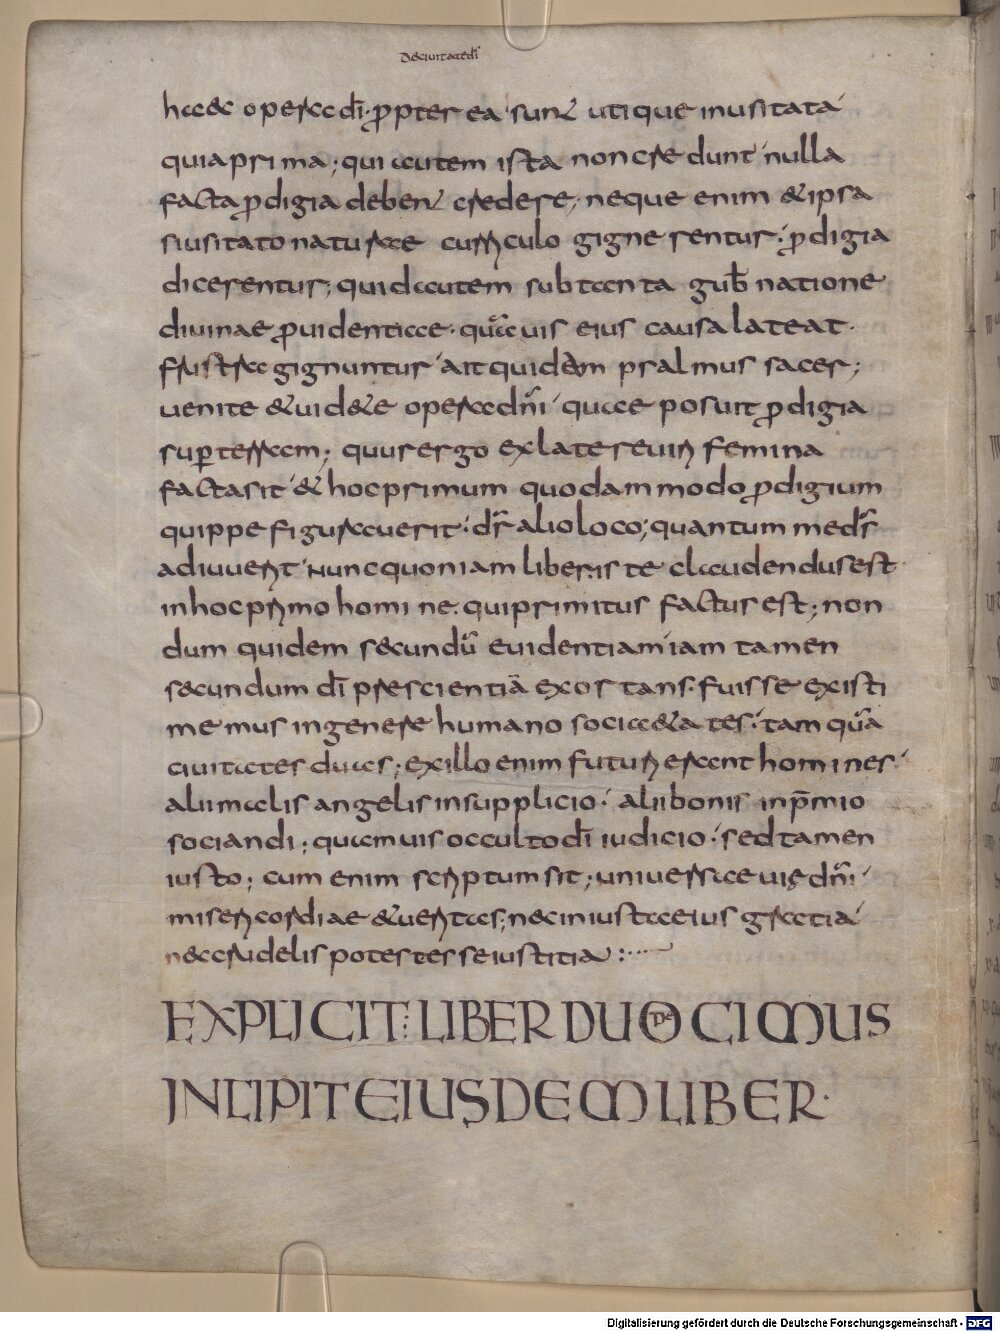 De ciuitate dī
haec opera dī. ꝓpter ea sunt utique inusitata
quia prima; qui autem ista non credunt nulla
facta ꝓdigia debent credere; neque enim & ipsa
si usitato naturae curriculo gignerentur. ꝓdigia
dicerentur; quid autem sub tanta gub̄natione
diuinae ꝓuidentiae. quāuis eius causa lateat.
frustra gignuntur ait quidem psalmus sacer;
uenite & uid&e opera dn̄i quae posuit ꝓdigia
suꝑ terram; cur ergo ex latere uiri femina
facta sit & hoc primum quodammodo ꝓdigium
quippe figurauerit. dr̄ alio loco; quantum me dr̄
adiuuerit nunc quoniam liber iste claudendus est
in hoc primo homine. qui primitus factus est; non
dum quidem secundū euidentiam iam tamen
secundum dī prescientiā exortans. fuisse existi
memus in genere humano soci&ates. tamquā
ciuitates duas; ex illo enim futuri erant homines.
alii malis angelis in supplicio. alii bonis in p̄mio
sociandi; quamuis occulto dī iudicio. sed tamen
iusto; cum enim scriptum sit; uniuersae uię dn̄i
misericordiae & ueritas; nec iniusta eius gratia
nec crudelis potest esse iustitia :
EXPLICIT LIBER DUODECIMUS
INCIPIT EIUSDEM LIBER.
Digitalisierung gefördert durch die Deutsche Forschungsgemeinschaft - DFG